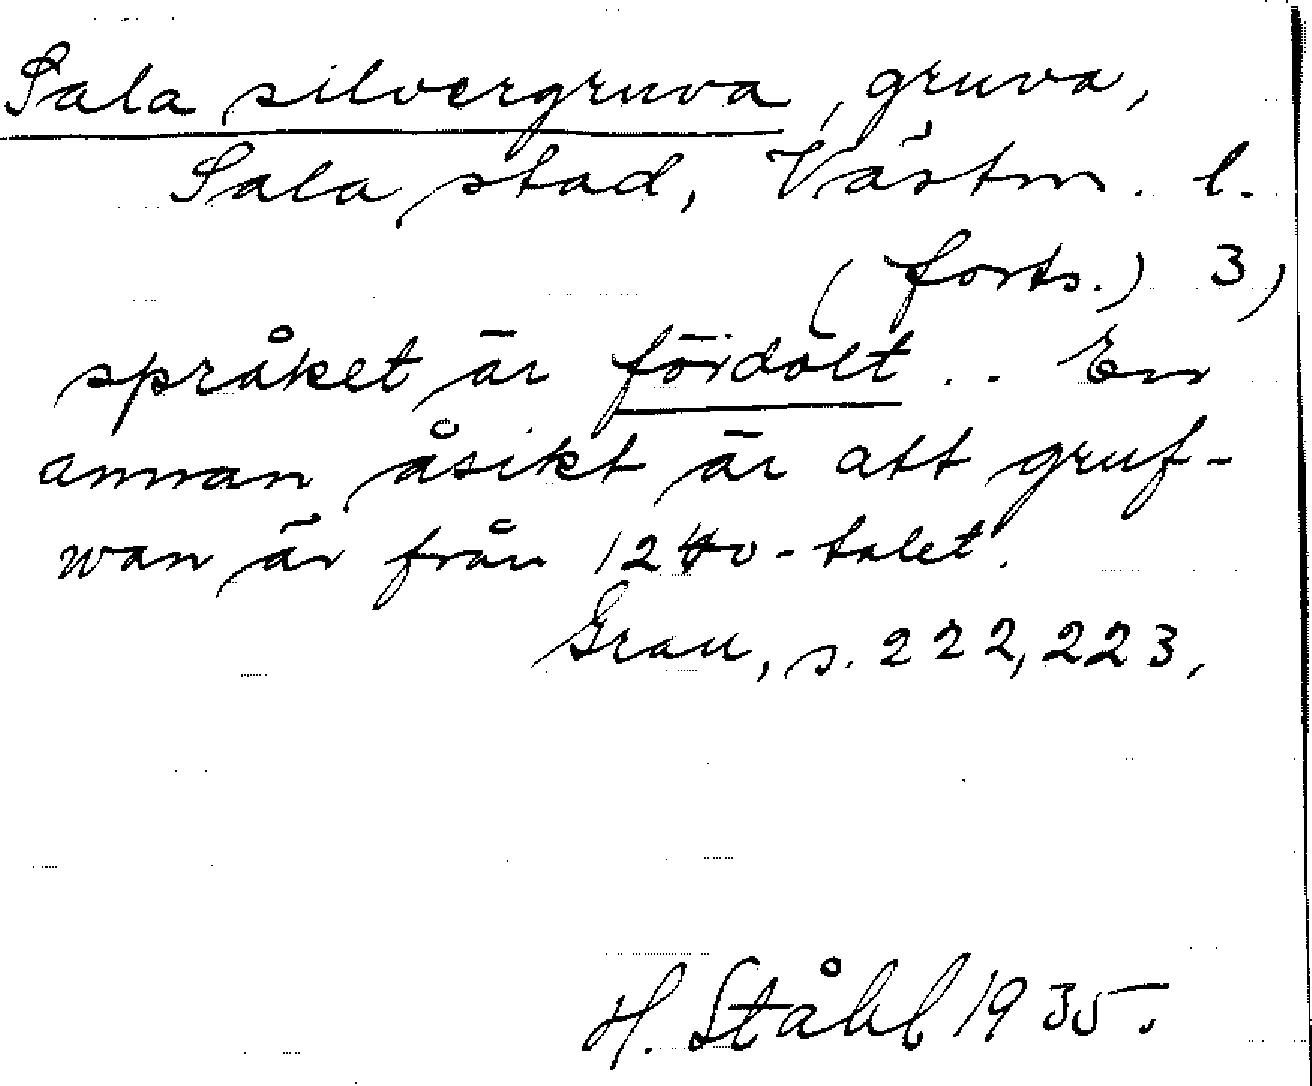 Sala silvergruva, gruva,
Sala stad, Västm. l.
(forts.) 3)
språket är fördolt .. En
annan åsikt är att gruf-
wan är från 1240-talet.
Grau, s. 222, 223,
H. Ståhl 1935.